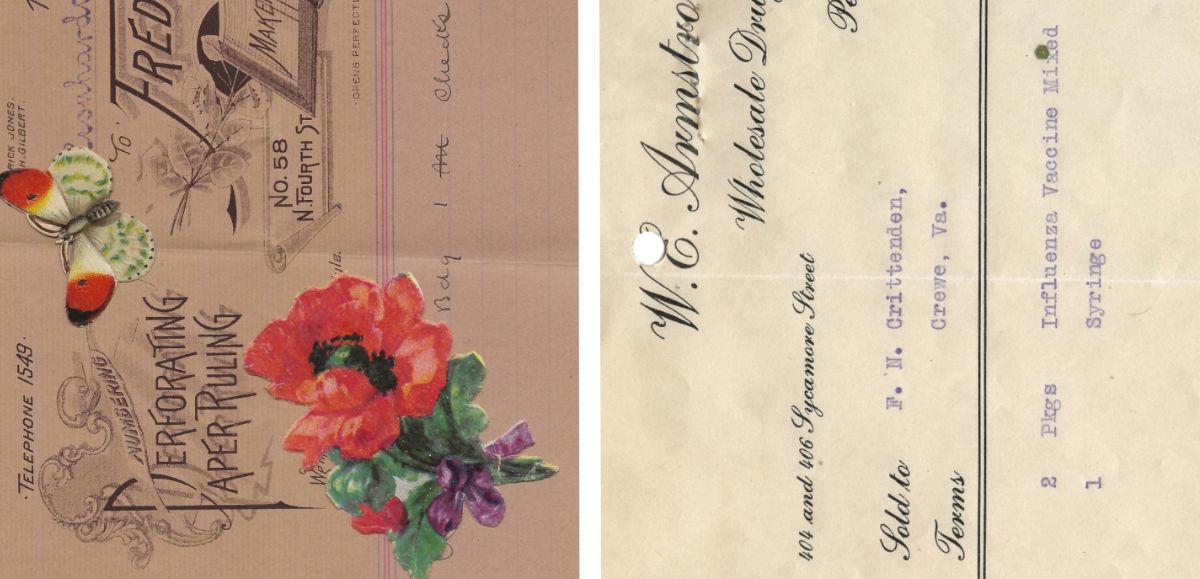 RICK JONES.
H. GILBERT.
TELEPHONE 1549.
TO
FRED
MAKER
OPENS PERFECT
NO. 58
N. FOURTH ST
NUMBERING
PERFORATING
PAPER RULING
Bdg 1 M Checks
W. E. Armstro
Wholesale Dru
Pe
404 and 406 Sycamore Street
Sold to F. N. Crittenden,
Crewe, Va.
Terms
2 Pkgs Influenza Vaccine Mixed
1 Syringe